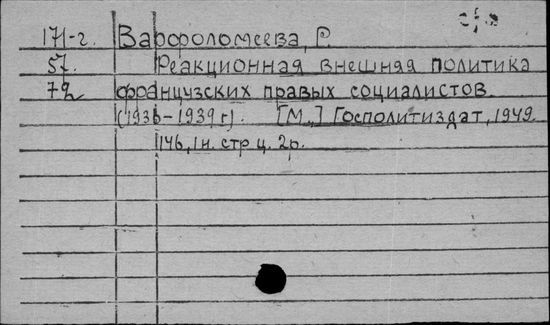 171-г. Варфоломеева, Р.
57. Реакционная внешняя политика
72 французских правых социалистов.
(1936-1939 г). [М.,] Госполитиздат, 1949.
146, 1 н. стр ц. 2 р.